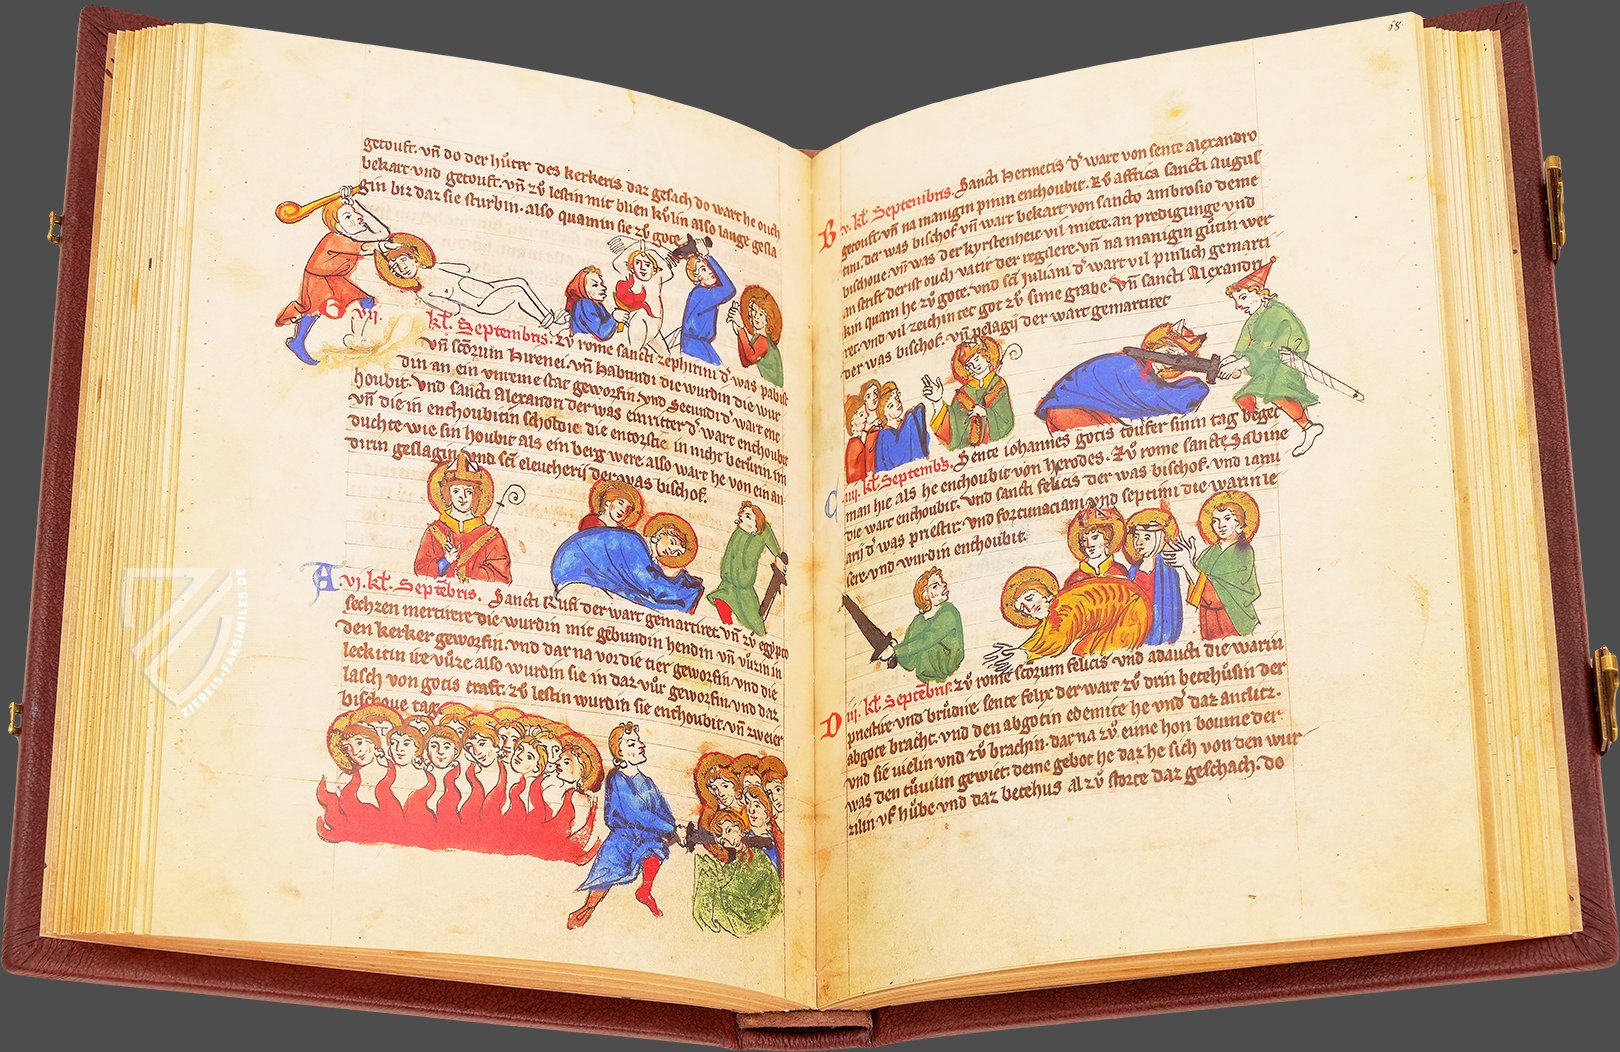 getouft. vñ do der hůter des kerkeris daz gesach do wart he ouch
bekart vnd getouft. vñ zů lestin mit blien kůlin also lange gesla
gin biz daz sie sturbin. also quamin sie zů gote.
G vij. kł. Septembris. Zů rome sancti zephirini d' was pabist
vñ scõrum hirenei. vñ Habundi die wurdin die wur
din an ein vnreine stat geworfin. vnd Secundi d' wart ent
houbit. vnd sancti Alexandri der was ein ritter d' wart enthoubit
vñ die in enthoubitin scholde die
duchte wie sin houbit als ein berg were also wart he von ein an
dirin geslagin. vnd scī eleutherij der was bischof.
A .vi. kł. Septēbris. Sancti Rufi der wart gemartiret. vñ zů egypto
sechzen mertirere die wurdin mit gebundin hendin vñ vůzin in
den kerker geworfin. vnd dar na vor die tier geworfin. vnd die
leckitin ire vůze also wurdin sie in daz vůr geworfin. vnd daz
lasch von gotis craft. zů lestin wurdin sie enthoubit. vñ zweier
bischoue tag.
68.
B .v. kł. Septembris. Sancti Hermetis d' wart von sente alexandro
getouft. vñ na manigin pinin enthoubit. Zů affrica sancti augus
tini. der was bischof vñ wart bekart von sancto ambrosio deme
bischoue. vñ was der kyrstenheit vil miete. an predigunge vnd
an scrift der ist ouch vatir der reglere. vñ na manigin gůtin wer
kin quam he zů gote. vnd scī Juliani d' wart vil pinlich gemarti
ret. vnd vil zeichin tet got zů sime grabe. Vñ sancti Alexandri
der was bischof. vñ pelagij der wart gemartiret
C .iiii. kł. Septembs. Sente iohannes gotis toufer sinin tag beget
man hie als he enthoubit von herodes. Zů rome sancte Sabine
die wart enthoubit. vnd sancti felicis der was bischof. vnd ianu
arij d' was priestir. vnd fortunaciani vnd septimi die warin le
sere. vnd wurdin enthoubit.
D .iij. kł. Septēbris. Zů rome scõrum felicis vnd adaucti die warin
priestire. vnd brůdire. sente felix der wart zů drin betehůsin der
abgote bracht. vnd den abgotin edemite he vnd' daz anclitz.
vnd sie vielin vnd zů brachin. dar na zů eime hon boume der
was den tůuilin gewiet deme gebot he daz he sich von den wur
zilin vf hůbe. vnd daz betehus al zů storte daz geschach. do
ZIEREIS-FAKSIMILES.DE